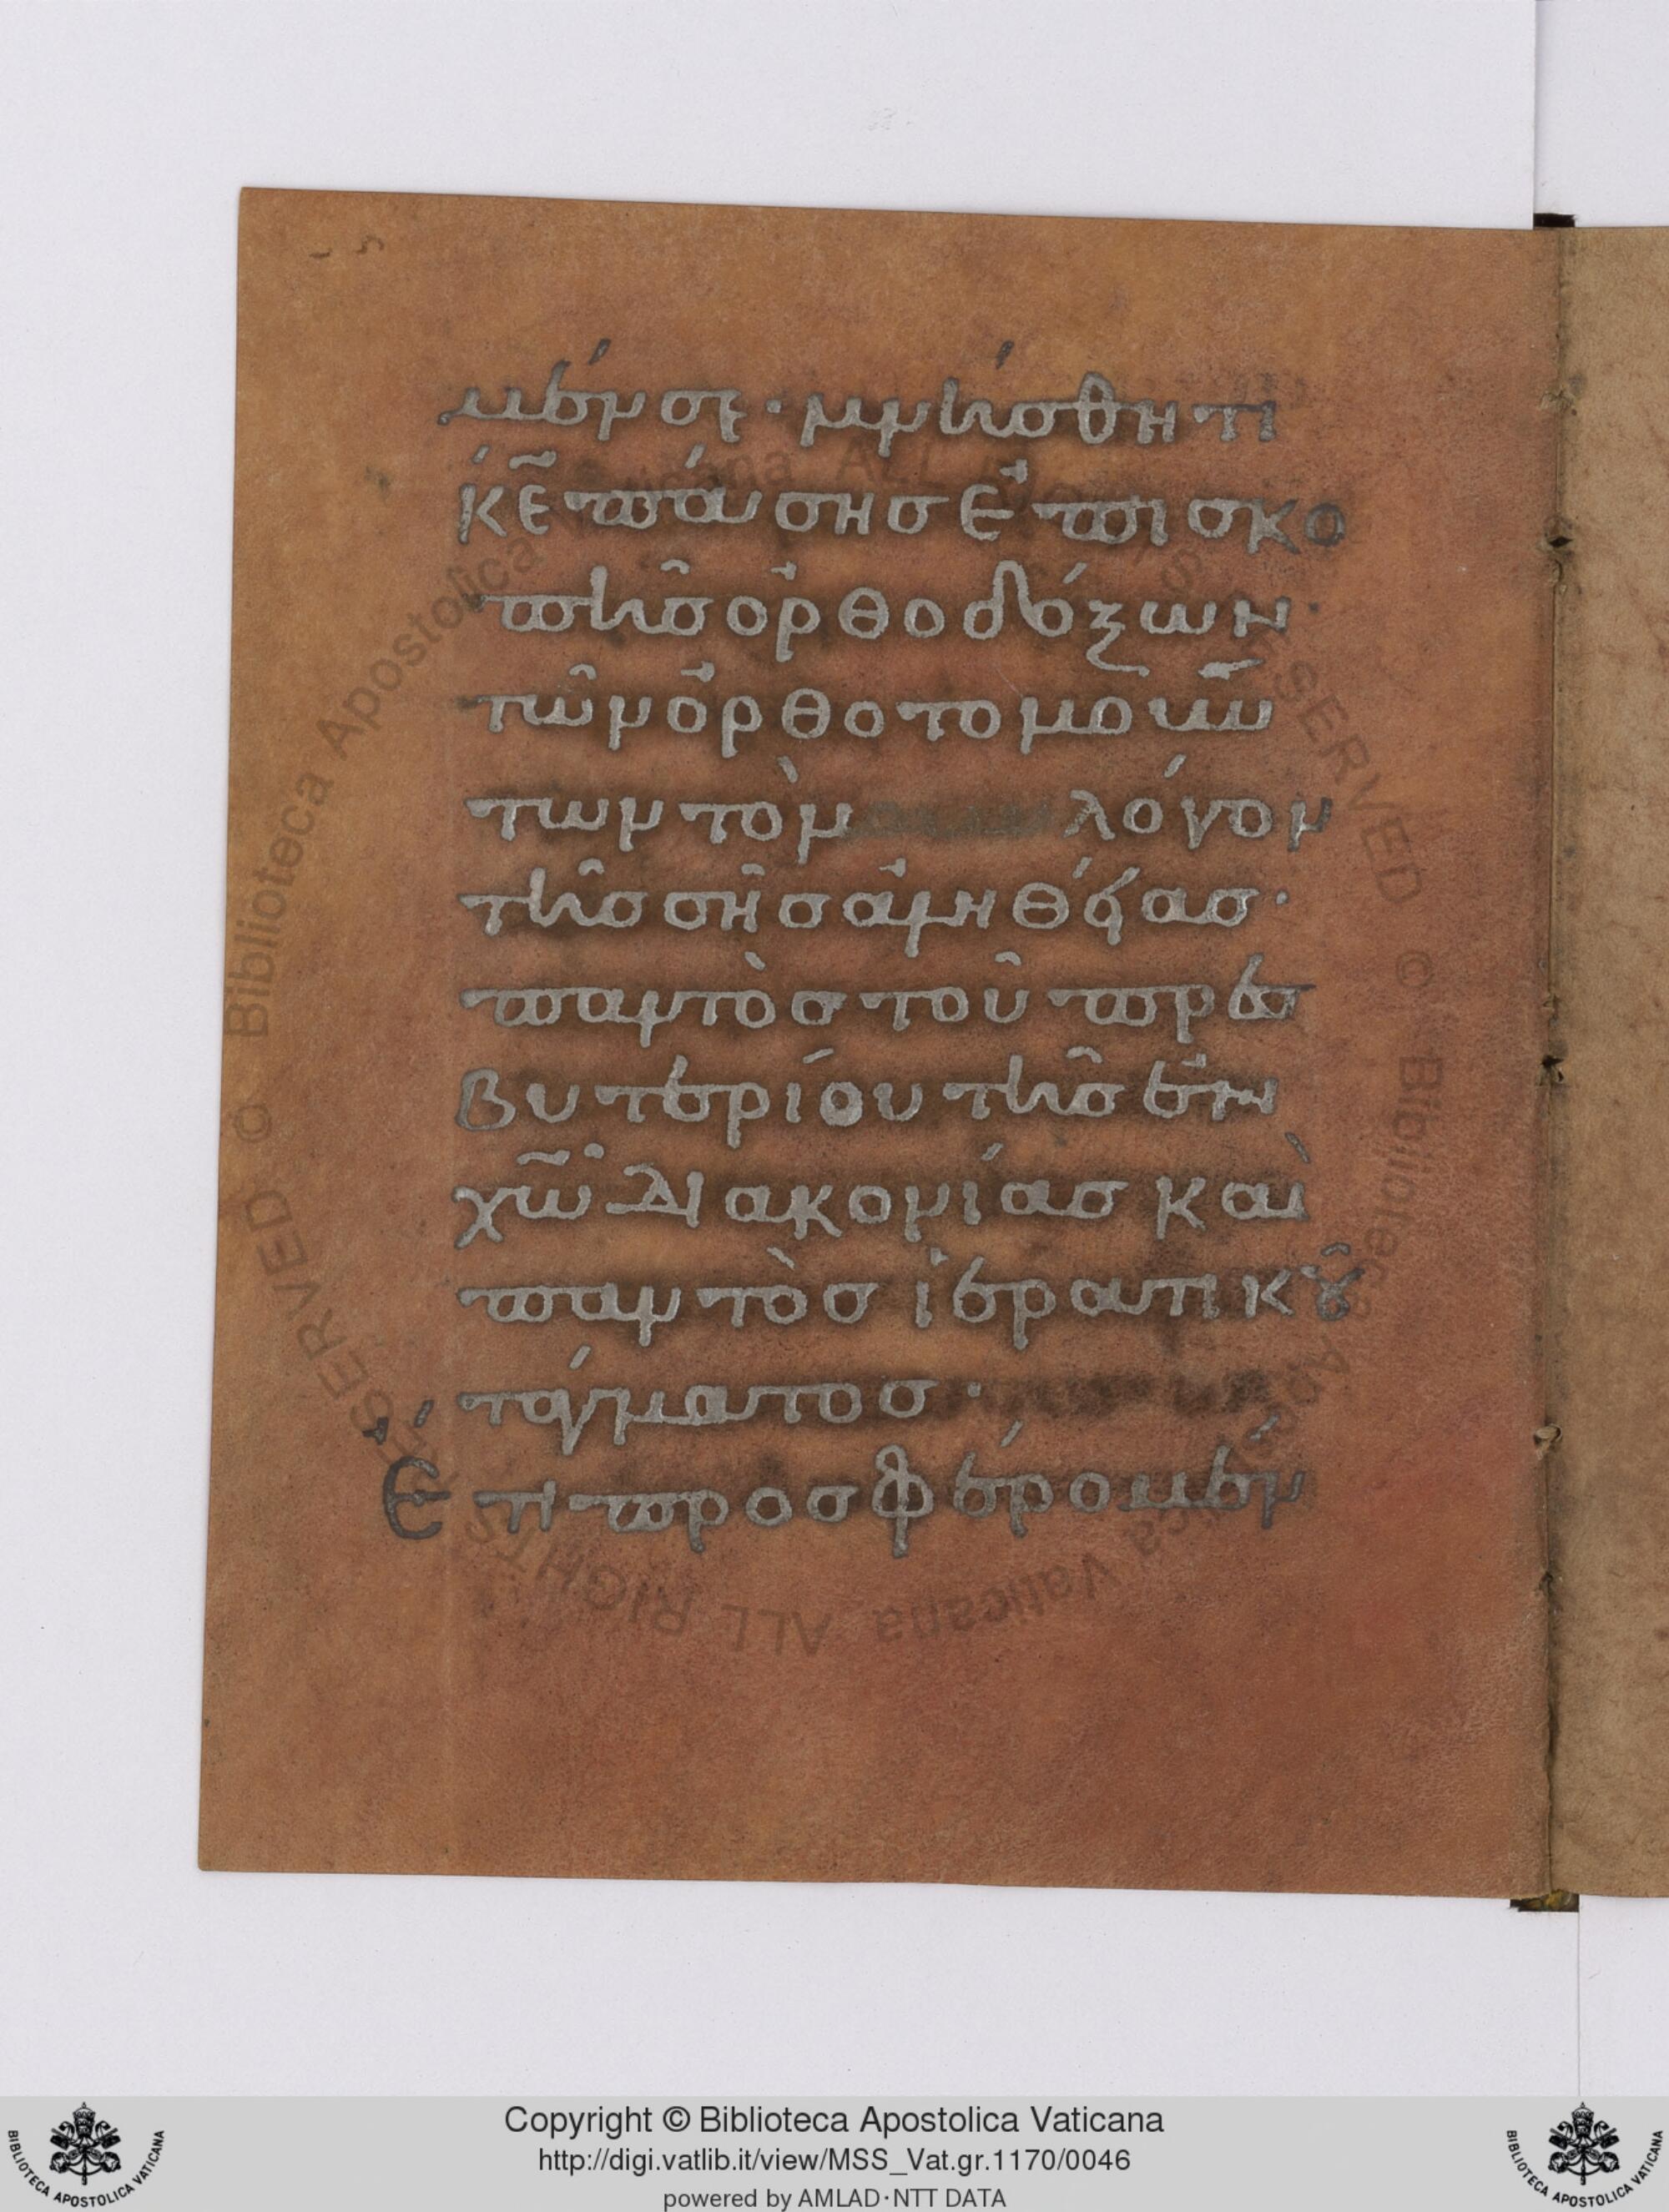 μέν σε· μνήσθητι
κε̄ πάσης ἐπισκο
πῆς ὀρθοδόξων·
τῶν ὀρθοτομούν
των τὸν λόγον
τῆς σῆς ἀληθείας·
παντὸς τοῦ πρεσ
βυτερίου τῆς ἐν
χω̄ διακονίας καὶ
παντὸς ἱερατικοῦ
τάγματος·
Ἔτι προσφέρομέν
Copyright © Biblioteca Apostolica Vaticana
http://digi.vatlib.it/view/MSS_Vat.gr.1170/0046
powered by AMLAD·NTT DATA
BIBLIOTECA APOSTOLICA VATICANA
BIBLIOTECA APOSTOLICA VATICANA
© Biblioteca Apostolica Vaticana ALL RIGHTS RESERVED © Biblioteca Apostolica Vaticana ALL RIGHTS RESERVED